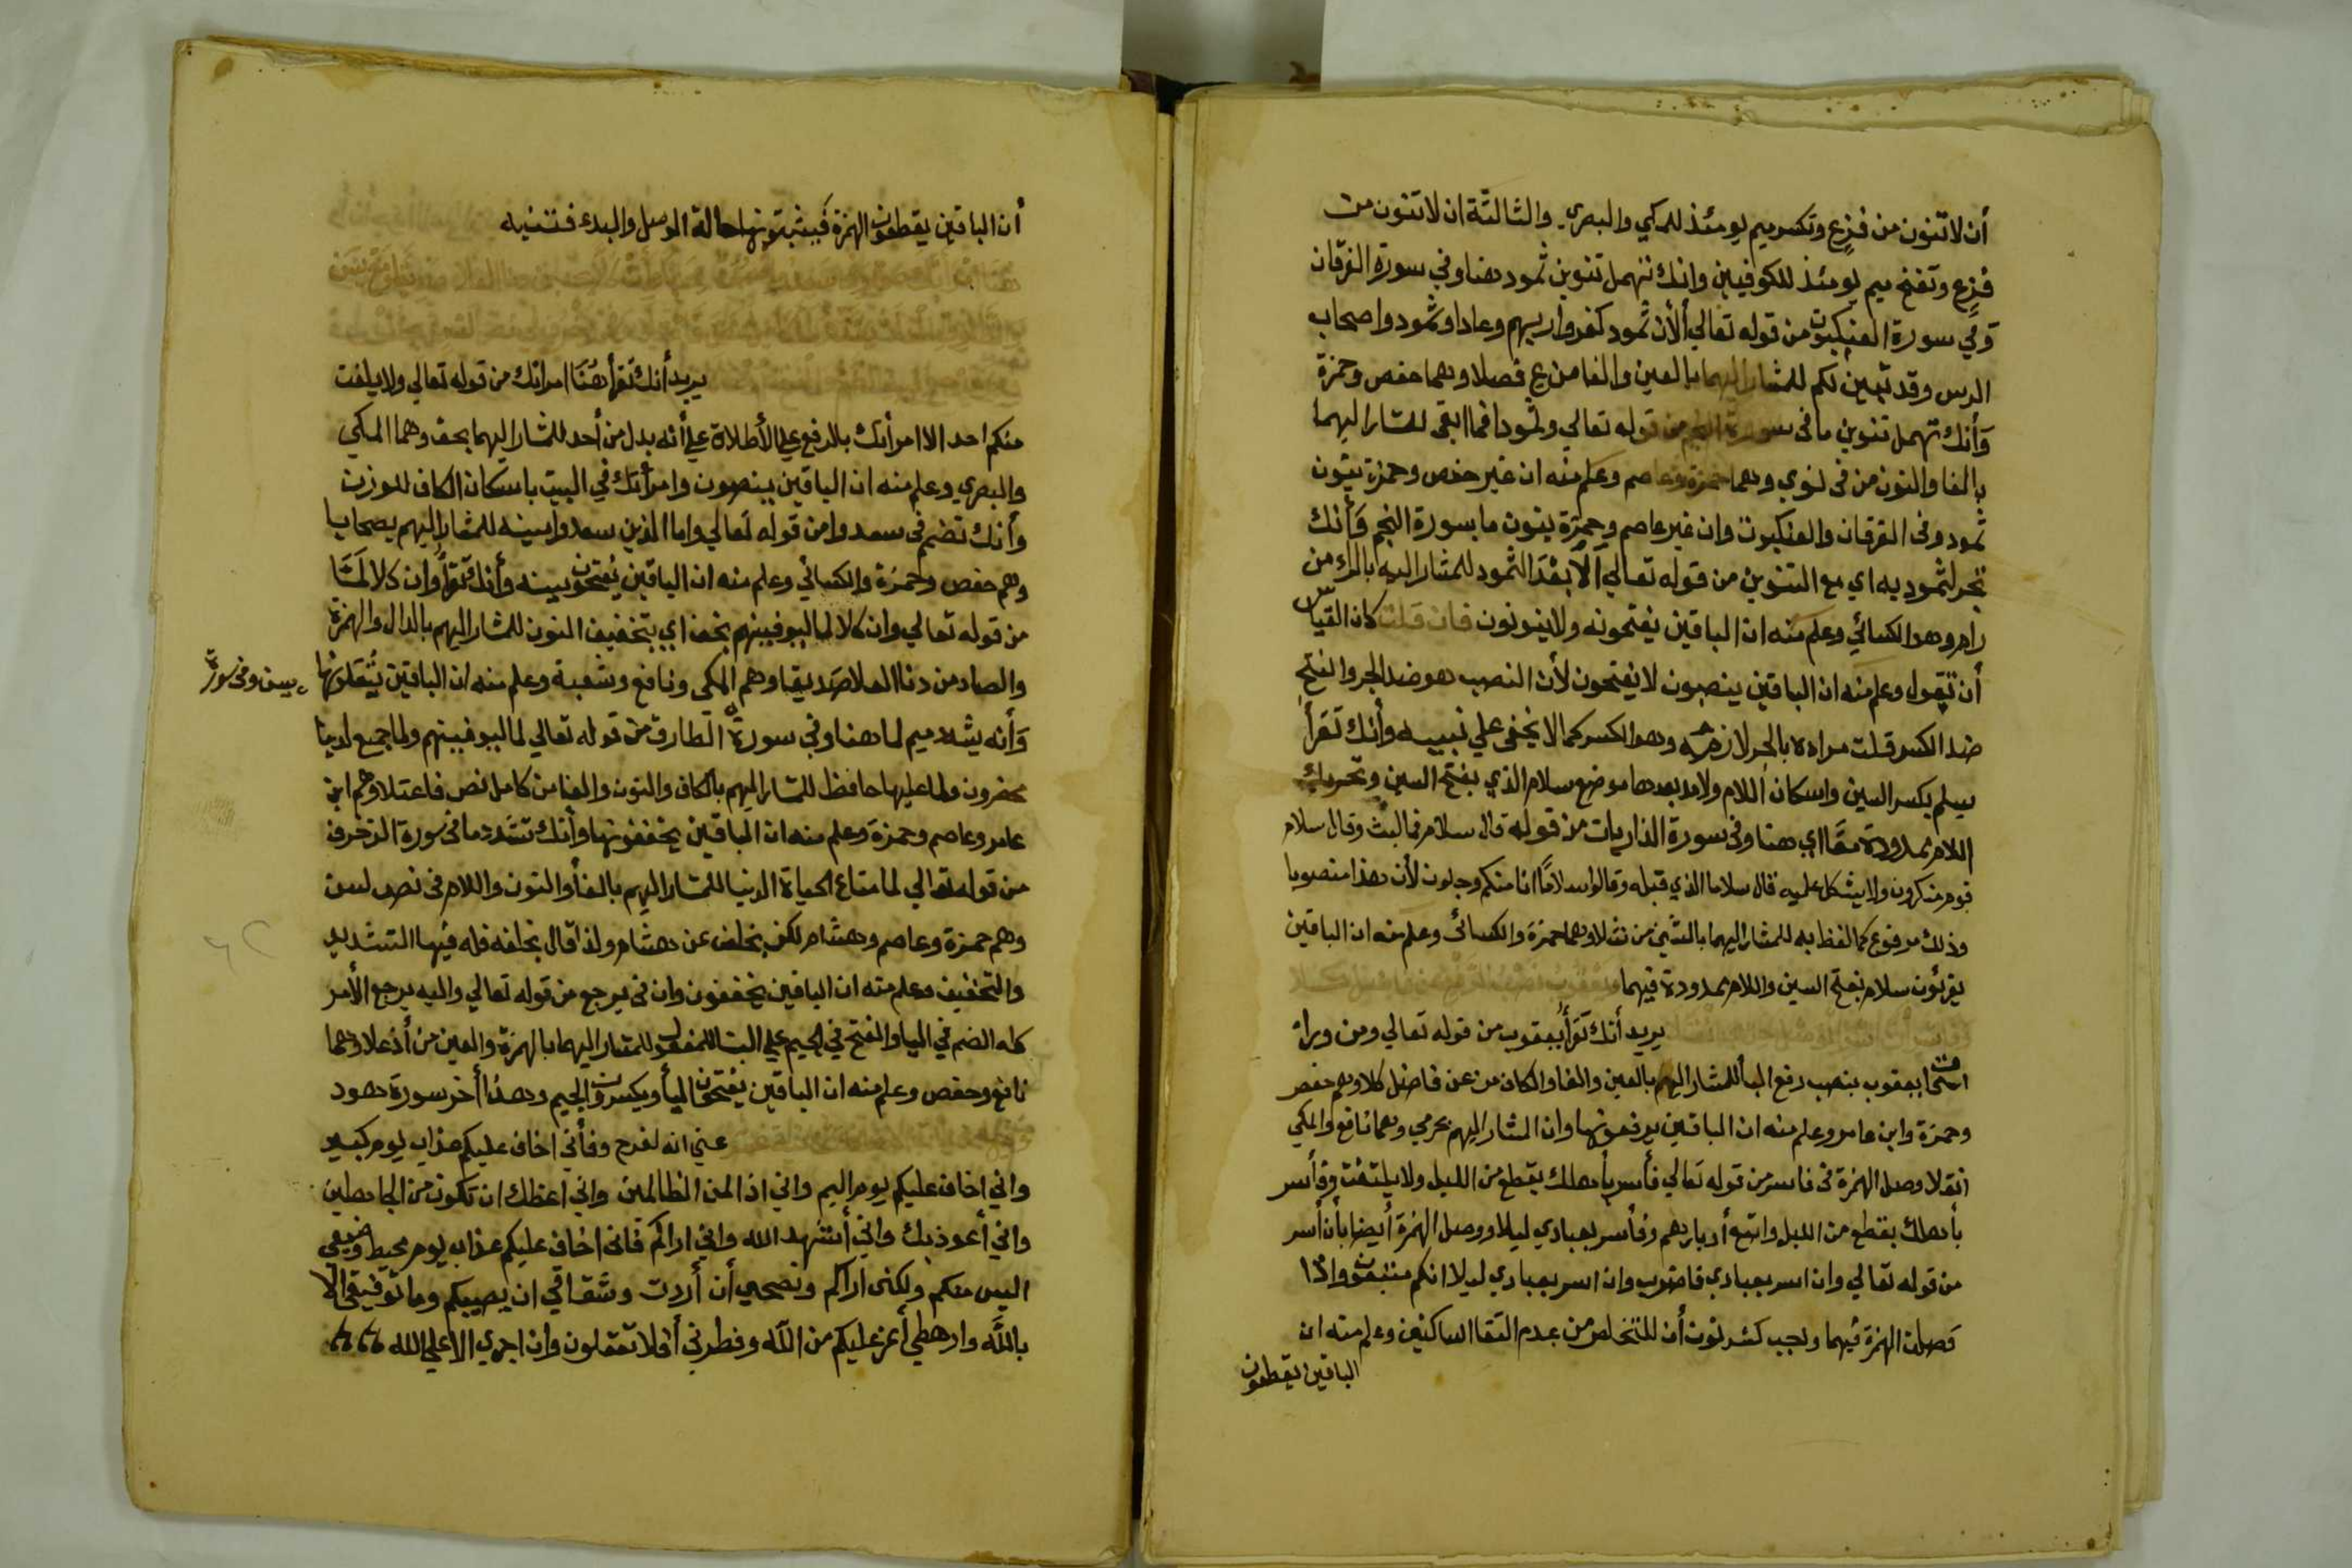 أن لا تنون من فزع وتكسر ميم يومئذ للمكي والبصري والثالثة ان لا تنون من
فزع وتفتح ميم يومئذ للكوفيين وانك تهمل تنوين ثمود هنا وفي سورة الفرقان
وفي سورة العنكبوت من قوله تعالي ألا ان ثمود كفروا ربهم وعادا وثمود واصحاب
الرس وقد تبين لكم للمشار اليهما بالعين والفا من ع فصلا وهما حفص وحمزة
وأنك تهمل تنوين ما في سورة النجم من قوله تعالي وثمودا فما ابقى للمشار اليهما
بالفا والنون من في نوي وهما حمزة وعاصم وعلم منه ان غير حفص وحمزة ينون
ثمود وفي الفرقان والعنكبوت وان غير عاصم وحمزة ينون ما بسورة النجم وأنك
تجر لثمود به اي مع التنوين من قوله تعالي ألا بعدا لثمود للمشار اليه بالراء من
رام وهو الكسائي وعلم منه ان الباقين يفتحونه ولا ينونون فان قلت كان القياس
أن تقول وعلم منه ان الباقين ينصبون لا يفتحون لأن النصب هو ضد الجر والفتح
ضد الكسر قلت مراده بالجر لازمه وهو الكسر كما لا يخفى علي نبيه وأنك تقرأ
بسلم بكسر السين واسكان اللام ولا مد بعدها موضع سلام الذي بفتح السين وتحريك
اللام ممدودة معا اي هنا وفي سورة الذاريات من قوله قال سلام فما لبث وقال سلام
قوم منكرون ولا يشكل عليه قال سلاما الذي قبله وقالوا سلاما انا منكم وجلون لأن هذا منصوبا
وذلك مرفوع كما لفظ به للمشار اليهما بالشين من شلا وهما حمزة والكسائي وعلم منه ان الباقين
يقرئون سلام بفتح السين واللام ممدودة فيهما
يريد أنك تقرأ يعقوب من قوله تعالي ومن وراء
اسحق يعقوب بنصب رفع البا للمشار اليهم بالعين والفا والكاف من عن فاضل كلا وهم حفص
وحمزة وابن عامر وعلم منه ان الباقين يرفعونها وان المشار اليهم بحرمي وهما نافع والمكي
نقلا وصل الهمزة في فاسر من قوله تعالي فأسر بأهلك بقطع من الليل ولا يلتفت وفأسر
بأهلك بقطع من الليل واتبع أدبارهم وفأسر بعبادي ليلا ووصل الهمزة أيضا بأن أسر
من قوله تعالي وان اسر بعبادي فاضرب وان اسر بعبادي ليلا انكم متبعون واذا
وصلت الهمزة فيهما وجب كسر نون أن للتخلص من عدم التقا الساكنين وعلم منه ان
الباقين يقطعون
أن الباقين يقطعون الهمزة فيثبتونها حالة الوصل والبدء فتنبه
يريد أنك تقرأ هنا امراتك من قوله تعالي ولا يلتفت
منكم احد الا امرأتك بالرفع علي الأطلاق علي أنه بدل من أحد للمشار اليهما بحق وهما المكي
والبصري وعلم منه ان الباقين ينصبون وامرأتك في البيت باسكان الكاف للوزن
وأنك تضم في سعدوا من قوله تعالي واما الذين سعدوا سينه للمشار اليهم بصحابا
وهم حفص وحمزة والكسائي وعلم منه ان الباقين يفتحون سينه وأنك تقرأ وان كلا لما
من قوله تعالي وان كلا لما ليوفينهم بخف اي بتخفيف النون للمشار اليهم بالدال والهمزة
والصاد من دنا العلا صديقا وهم المكي ونافع وشعبة وعلم منه ان الباقين يثقلونها
يس وفي سورة
وأنه يشدد ميم لما هنا وفي سورة الطارق من قوله تعالي لما ليوفينهم ولما جميع لدينا
محضرون ولما عليها حافظ للمشار اليهم بالكاف والنون والفا من كامل نص فاعتلا وهم ابن
عامر وعاصم وحمزة وعلم منه ان الباقين يخففونها وأنك تشدد ما في سورة الزخرف
من قوله تعالي لما متاع الحياة الدنيا للمشار اليهم بالفا والنون واللام في نص لسن
وهم حمزة وعاصم وهشام لكن بخلف عن هشام ولذا قال بخلفه فله فيها التشديد
والتخفيف وعلم منه ان الباقين يخففون وان في يرجع من قوله تعالي واليه يرجع الأمر
كله الضم في اليا والفتح في الجيم علي البنا للمفعول للمشار اليهما بالهمزة والعين من أذ علا وهما
نافع وحفص وعلم منه ان الباقين يفتحون اليا ويكسرون الجيم وهذا أخر سورة هود
عني انه لفرح وفأني اخاف عليكم عذاب يوم كبير
واني اخاف عليكم يوم اليم واني اذا لمن الظالمين واني اعظك ان تكون من الجاهلين
واني أعوذ بك واني أشهد الله واني اراكم فاني اخاف عليكم عذاب يوم محيط وضيفي
اليس منكم ولكني اراكم ونصحي أن أردت وشقاقي ان يصيبكم وما توفيقي الا
بالله وارهطي أعز عليكم من الله وفطرني أفلا تعقلون وان اجري الا علي الله